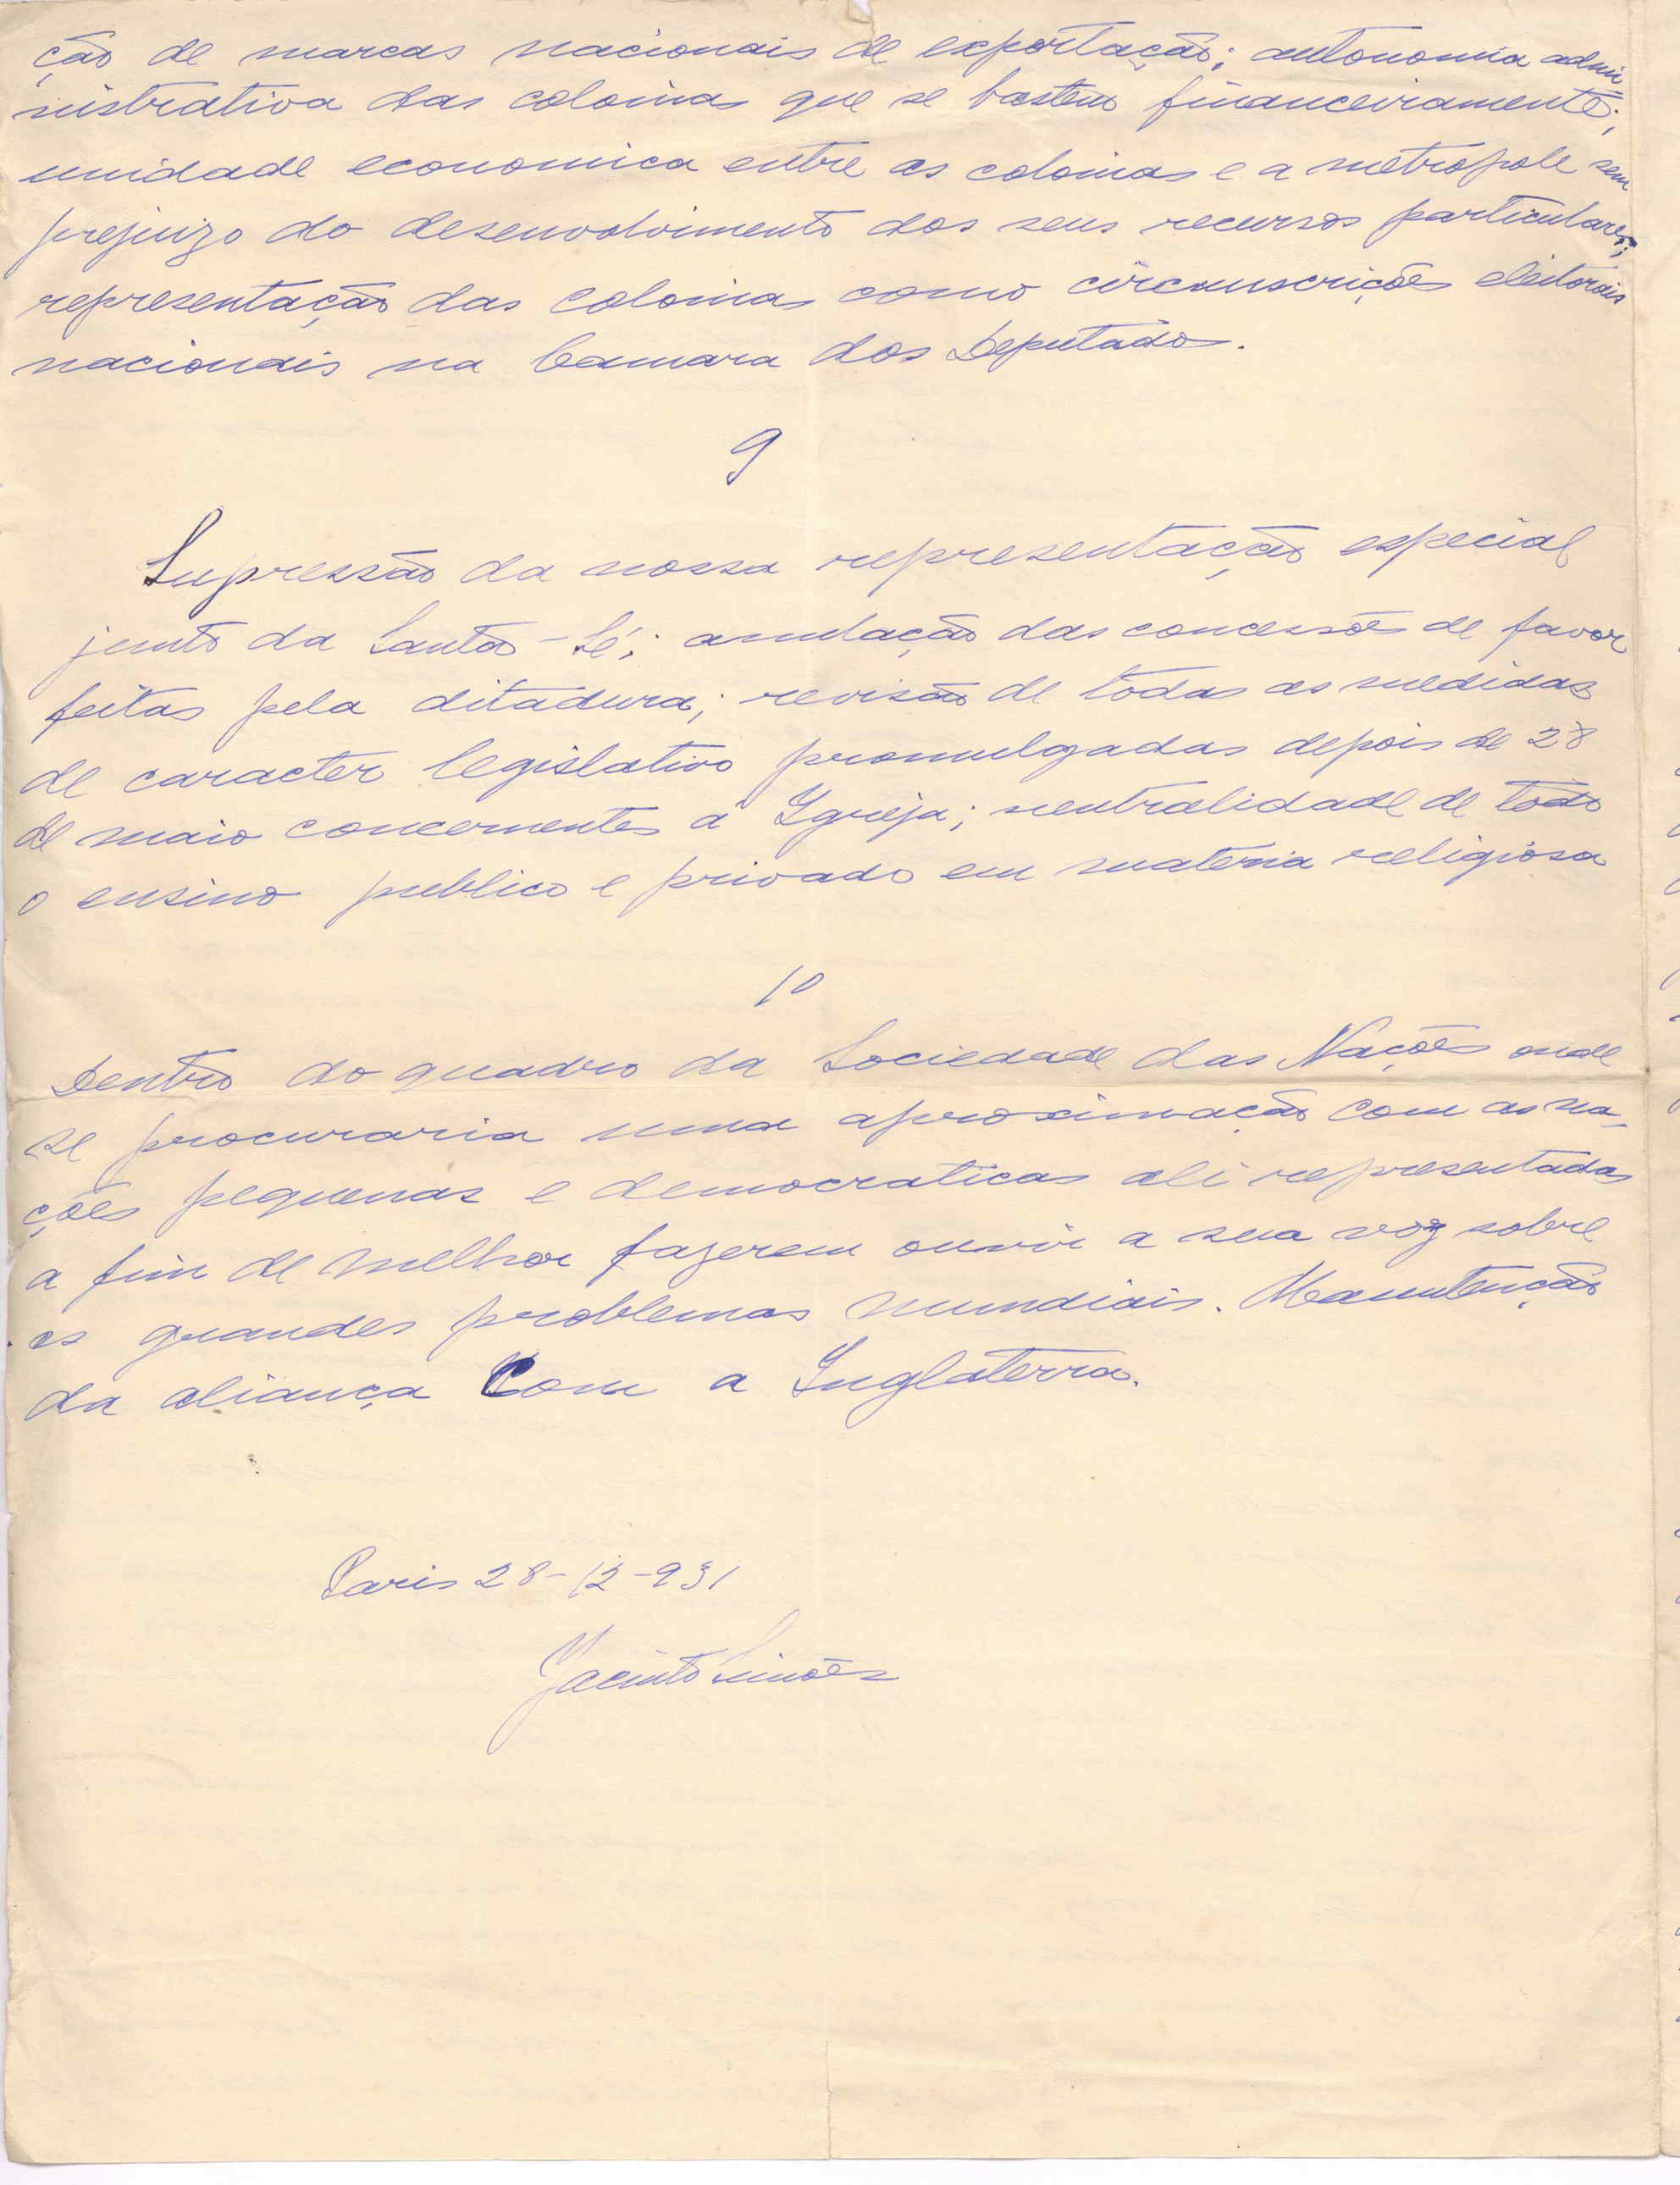 ção de marcas nacionais de exportação; autonomia admi-
nistrativa das colonias que se bastem financeiramente;
unidade economica entre as colonias e a metropole sem
prejuizo do desenvolvimento dos seus recursos particulares;
representação das colonias como circunscrições eleitorais
nacionais na Camara dos Deputados.
9
Supressão da nossa representação especial
junto da Santa-Sé; anulação das concessões de favor
feitas pela ditadura; revisão de todas as medidas
de caracter legislativo promulgadas depois de 28
de maio concernentes á Igreja; neutralidade de todo
o ensino publico e privado em materia religiosa
10
Dentro do quadro da Sociedade das Nações onde
se procuraria uma aproximação com as na-
ções pequenas e democraticas ali representadas
a fim de melhor fazerem ouvir a sua voz sobre
os grandes problemas mundiais. Manutenção
da aliança com a Inglaterra.
Paris 28-12-931
Jacinto Simões